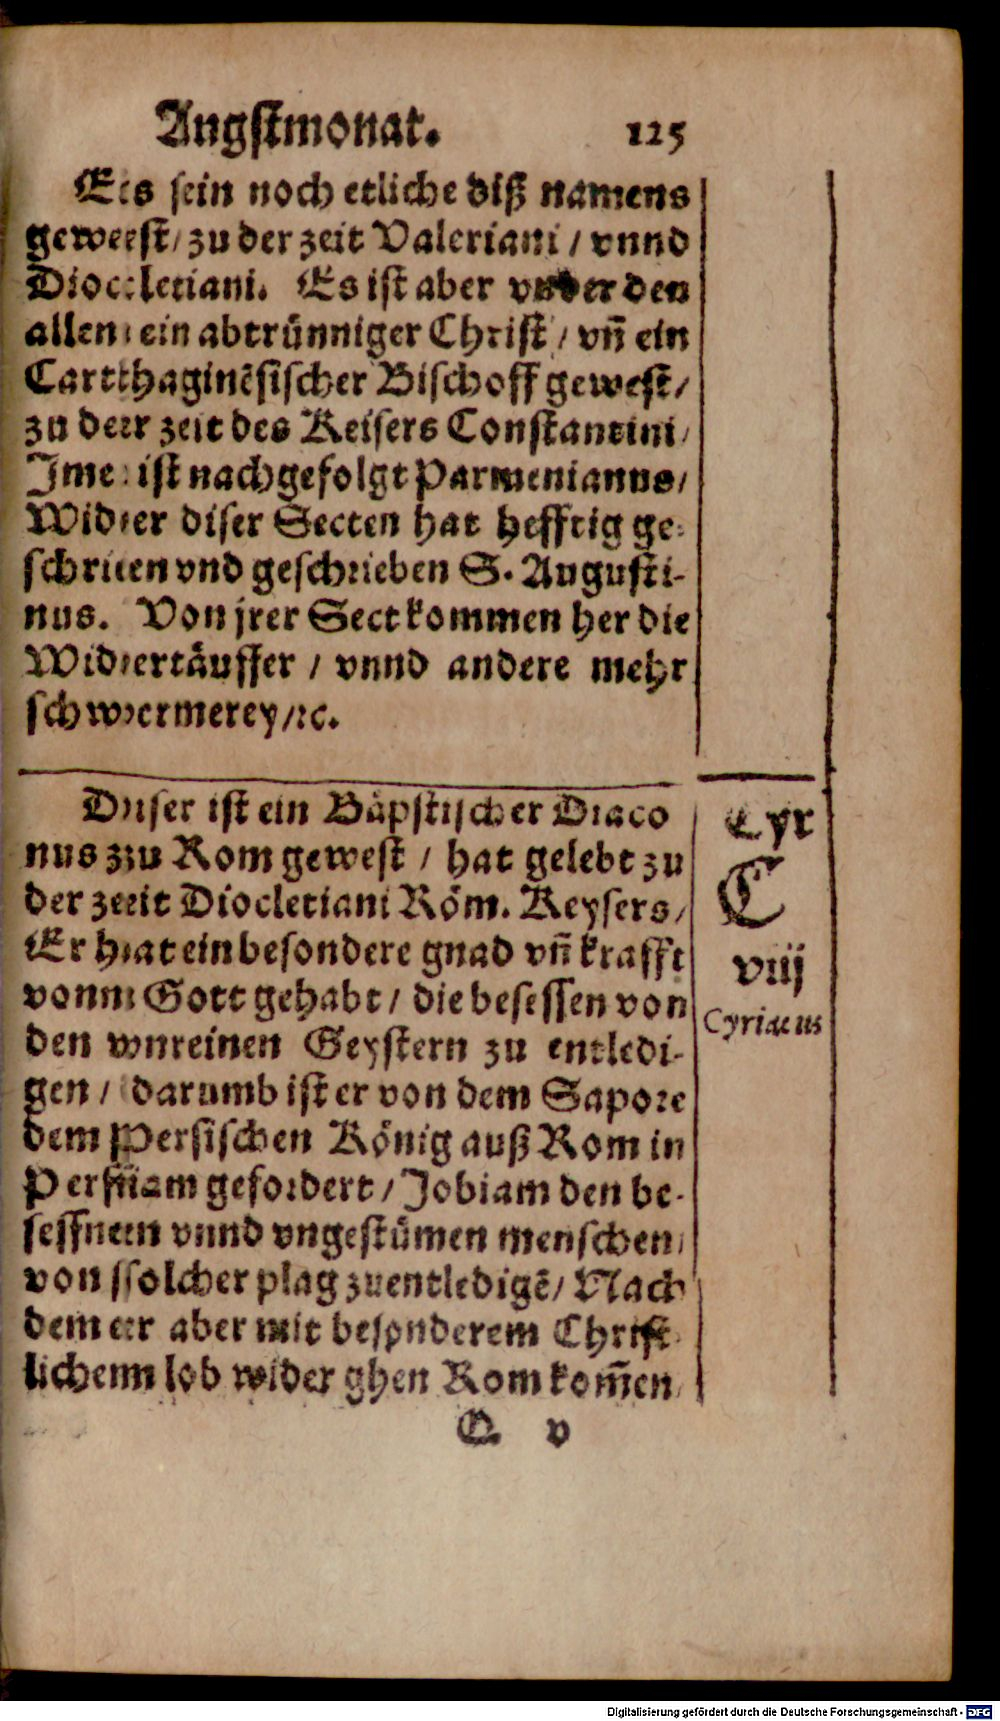 Augstmonat. 125
Es sein noch etliche diß namens
gewest / zu der zeit Valeriani / vnnd
Diocletiani. Es ist aber vnder den
allen ein abtrünniger Christ / vñ ein
Carthaginẽsischer Bischoff gewest /
zu der zeit des Keisers Constantini /
Jme ist nachgefolgt Parmenianus /
Wider diser Secten hat hefftig ge-
schriten vnd geschrieben S. Augusti-
nus. Von jrer Sect kommen her die
Widertäuffer / vnnd andere mehr
schwermerey / ꝛc.
Diser ist ein Bäpstischer Diaco
nus zu Rom gewest / hat gelebt zu
der zeit Diocletiani Röm. Keysers /
Er hat ein besondere gnad vñ krafft
von Gott gehabt / die besessen von
den vnreinen Geystern zu entledi-
gen / darumb ist er von dem Sapore
dem Persischen König auß Rom in
Persiam gefordert / Jobiam den be-
seßnen vnnd vngestümen menschen /
von solcher plag zuentledigẽ / Nach
dem er aber mit besonderem Christ-
lichem lob wider ghen Rom kom̃en /
Cyr
C
viij
Cyriacus
Q v
Digitalisierung gefördert durch die Deutsche Forschungsgemeinschaft - DFG